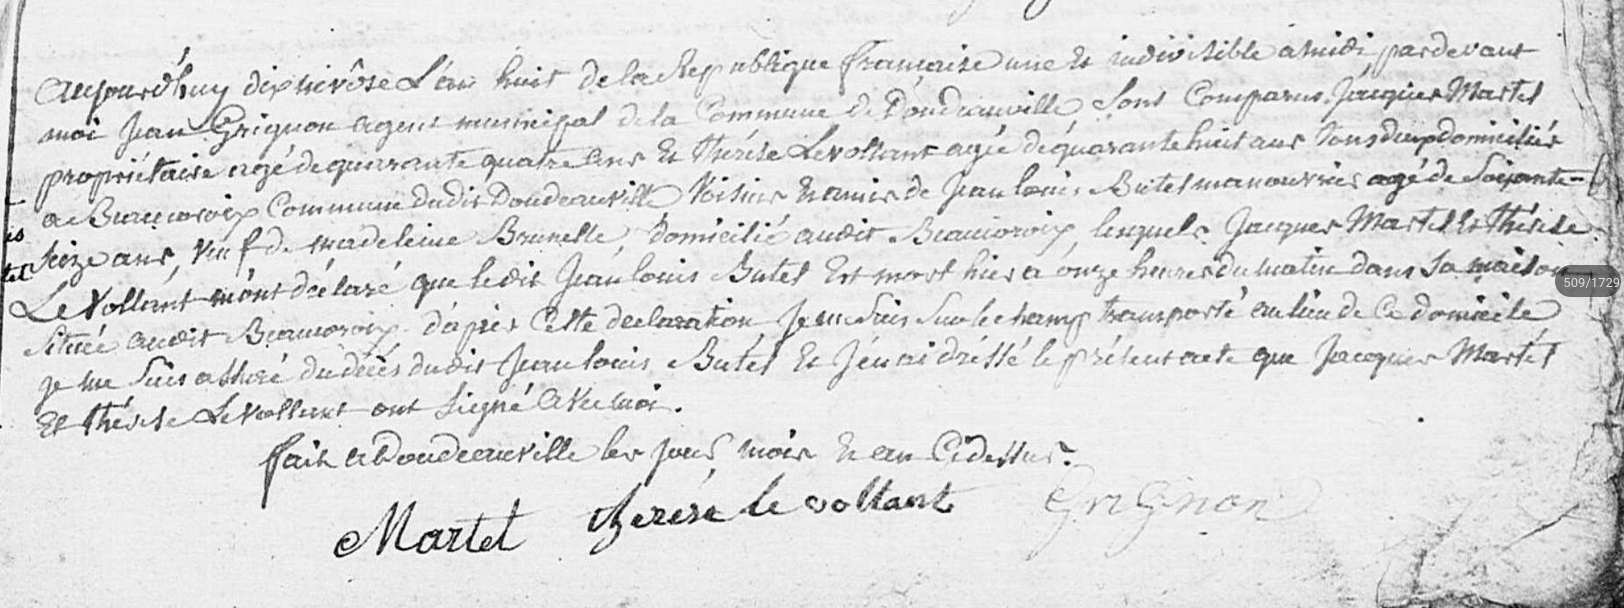 aujourd'huy dix nivôse L'an huit de la Republique francaise une et indivisible a midi, pardevant
moi Jean Grignon agent municipal de la Commune de Doudeauville Sont Comparus Jacques Martel
propriétaire agé de quarante quatre ans Et thérése Levollant agée de quarante huit ans tous deux domiciliés
a Beaucoroix Commune dudit Doudeauville Voisins et amis de Jean louis Butel manouvrier agé de Soixante-
Seize ans, veuf de madeleine Brunelle, domicilié audit Beaucoroix, lesquels Jacques Martel Et thérése
Le Vollant m'ont déclaré que ledit Jean louis Butel Est mort hier à onze heures du matin dans Sa maison
Située audit Beaucoroix. d'après Cette declaration Je me Suis Sur le champ transporté au lieu de Ce domicile
je me Suis assuré du décès dudit Jean louis Butel Et J'en ai dréssé le présent acte que Jacques Martel
Et thérése Le Vollant ont Signé avec moi.
fait a Doudeauville les jour mois et an Cidessus.
Martel therese le vollant Grignon
509/1729